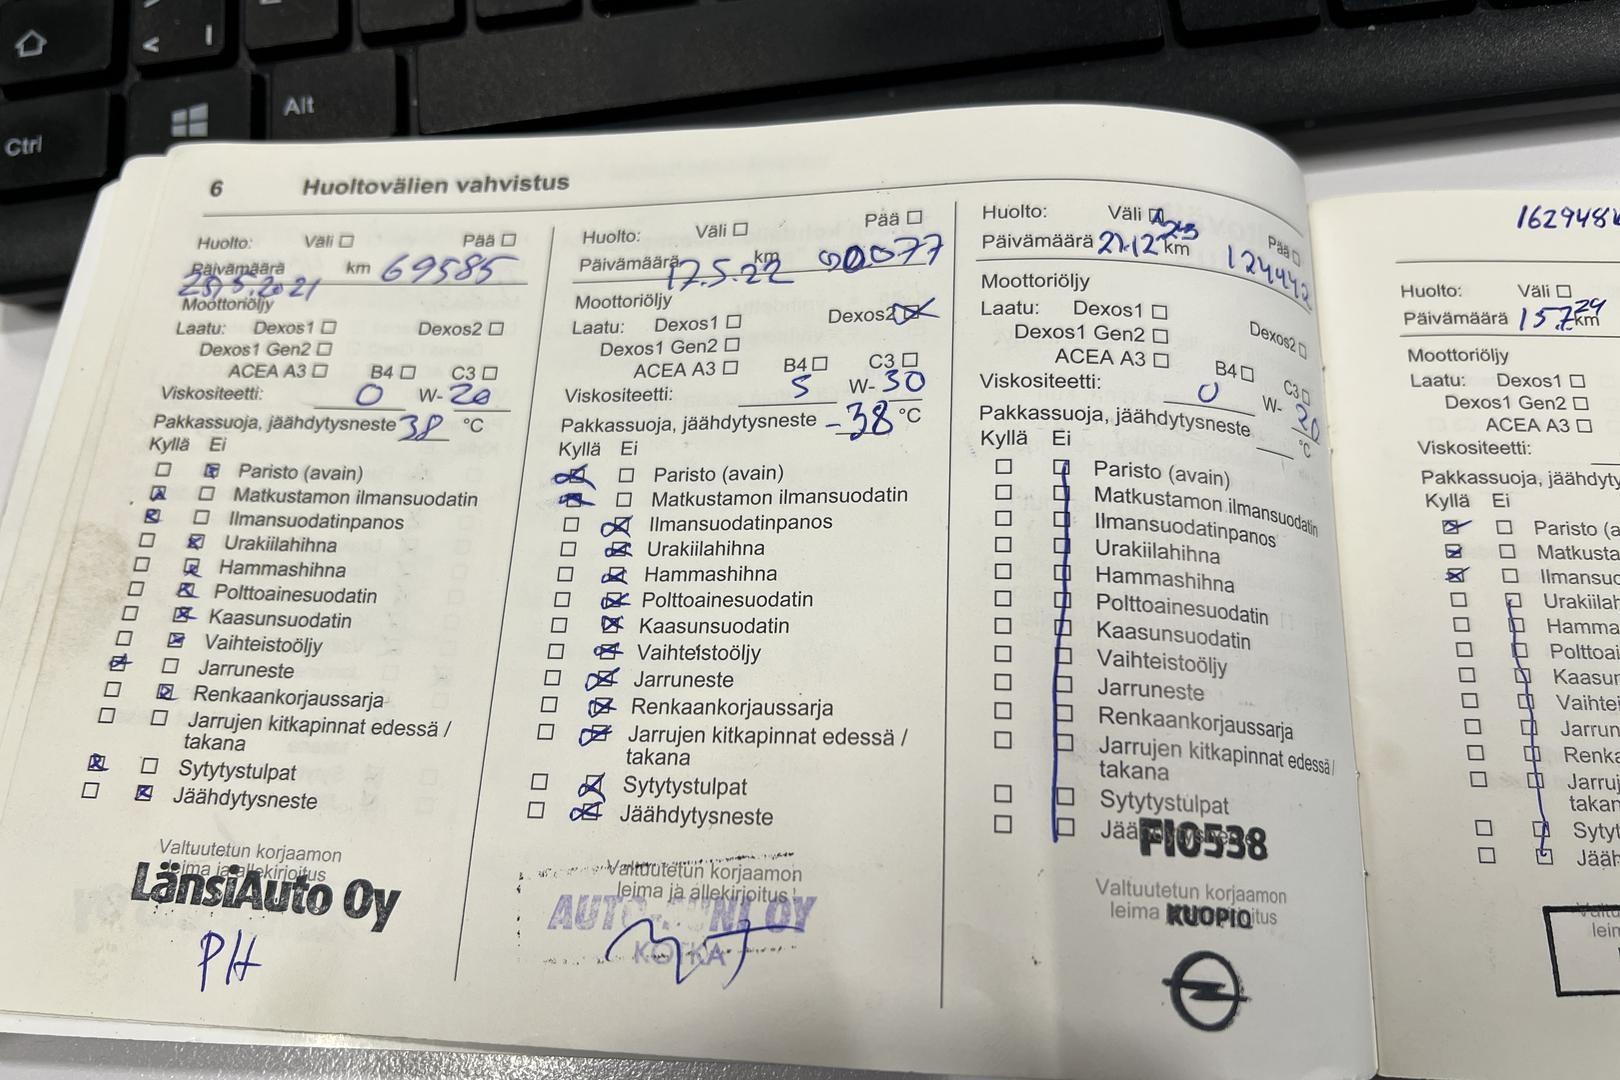 Alt
Ctrl
6 Huoltovälien vahvistus
Huolto: Väli Pää
Päivämäärä km 69585
25.5.2021
Moottoriöljy
Laatu: Dexos1 Dexos2
Dexos1 Gen2
ACEA A3 B4 C3
Viskositeetti: 0 W- 20
Pakkassuoja, jäähdytysneste 38 °C
Kyllä Ei
Paristo (avain)
Matkustamon ilmansuodatin
Ilmansuodatinpanos
Urakiilahihna
Hammashihna
Polttoainesuodatin
Kaasunsuodatin
Vaihteistoöljy
Jarruneste
Renkaankorjaussarja
Jarrujen kitkapinnat edessä /
takana
Sytytystulpat
Jäähdytysneste
Valtuutetun korjaamon
leima ja allekirjoitus
LänsiAuto Oy
PH
Huolto: Väli Pää
Päivämäärä 17.5.22 km 90077
Moottoriöljy
Laatu: Dexos1 Dexos2
Dexos1 Gen2
ACEA A3 B4 C3
Viskositeetti: 5 W- 30
Pakkassuoja, jäähdytysneste -38 °C
Kyllä Ei
Paristo (avain)
Matkustamon ilmansuodatin
Ilmansuodatinpanos
Urakiilahihna
Hammashihna
Polttoainesuodatin
Kaasunsuodatin
Vaihteistoöljy
Jarruneste
Renkaankorjaussarja
Jarrujen kitkapinnat edessä /
takana
Sytytystulpat
Jäähdytysneste
Valtuutetun korjaamon
leima ja allekirjoitus
OY
KOTKA
Huolto: Väli Pää
Päivämäärä 21.12 23 km 124442
Moottoriöljy
Laatu: Dexos1 Dexos2
Dexos1 Gen2
ACEA A3 B4 C3
Viskositeetti: 0 W- 20
Pakkassuoja, jäähdytysneste °C
Kyllä Ei
Paristo (avain)
Matkustamon ilmansuodatin
Ilmansuodatinpanos
Urakiilahihna
Hammashihna
Polttoainesuodatin
Kaasunsuodatin
Vaihteistoöljy
Jarruneste
Renkaankorjaussarja
Jarrujen kitkapinnat edessä /
takana
Sytytystulpat
FI0538
Valtuutetun korjaamon
leima
KUOPIO
162948k
Huolto: Väli
Päivämäärä 15.7.24 km
Moottoriöljy
Laatu: Dexos1
Dexos1 Gen2
ACEA A3
Viskositeetti:
Pakkassuoja, jäähdyty
Kyllä Ei
Paristo (a
Matkusta
Ilmansuo
Urakiilah
Hamma
Polttoai
Kaasun
Vaihtei
Jarrun
Renka
Jarruj
takan
Sytyt
Jääh